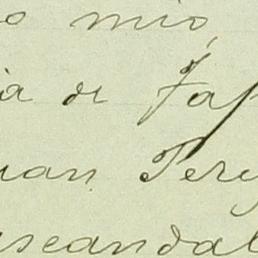 o mio,
ia di Jap
uan Tery
scandal